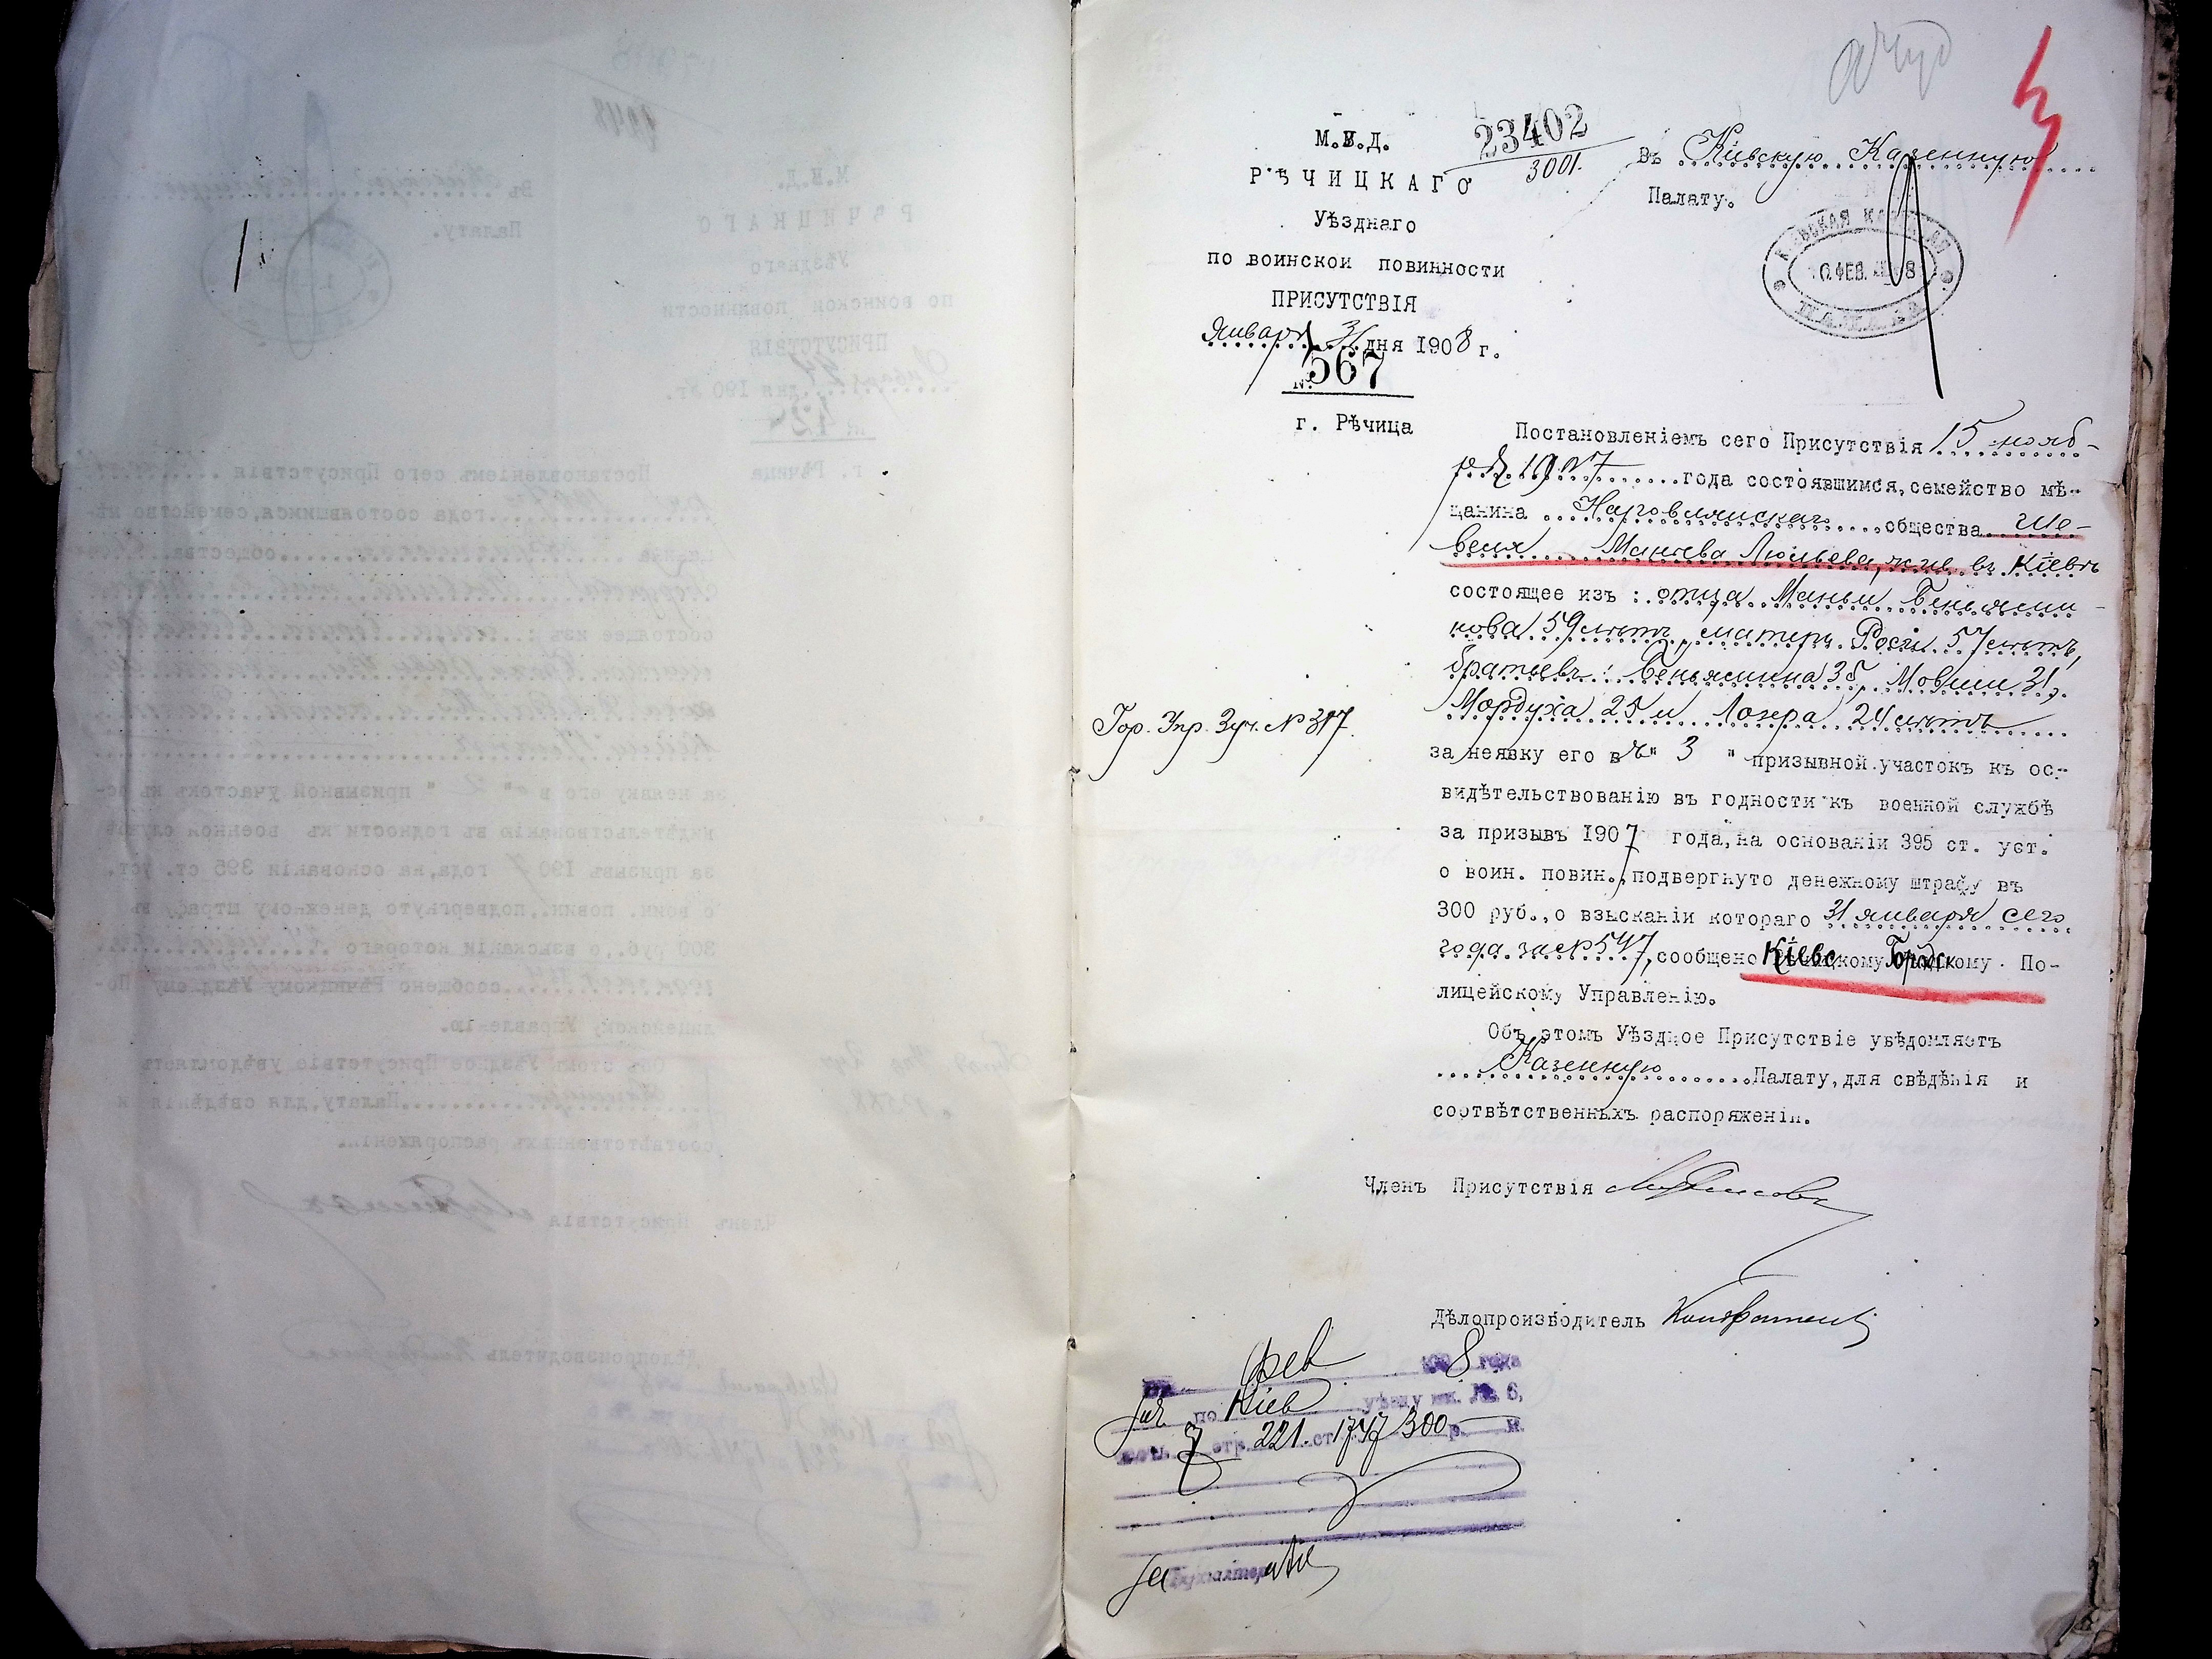 23402
3001.
М.В.Д.
РѢЧИЦКАГО
Уѣзднаго
по воинской повинности
ПРИСУТСТВІЯ
Января 31 дня 1908 г.
№ 567
г. Рѣчица
Въ Кіевскую Казенную
Палату.
КІЕВСКАЯ КАЗЕННАЯ
ФЕВ. 8
ПАЛАТА
Постановленіемъ сего Присутствія 15 нояб-
ря 1907 года состоявшимся, семейство мѣ-
щанина Наровлянскаго общества Ше-
веля Маньева Люльева, жив. въ Кіевѣ
состоящее изъ: отца Маньи Беньями-
нова 59 лѣтъ, матери Роси 57 лѣтъ,
братьевъ: Беньямина 35, Мовши 31,
Мордуха 25 и Лозера 24 лѣтъ
Гор. Упр. Зуч. № 317
за неявку его въ "3" призывной участокъ къ ос-
видѣтельствованію въ годности къ военной службѣ
за призывъ 1907 года, на основаніи 395 ст. уст.
о воин. повин., подвергнуто денежному штрафу въ
300 руб., о взысканіи котораго 31 января сего
года за № 547, сообщено Кіевскому Городскому По-
лицейскому Управленію.
Объ этомъ Уѣздное Присутствіе увѣдомляетъ
Казенную Палату, для свѣдѣнія и
соотвѣтственныхъ распоряженій.
Членъ Присутствія
Дѣлопроизводитель
фев 1908 года
по Кіев уѣзду кн. № 6,
7 стр. 221 ст 1747 300 р. к.
Бухгалтера